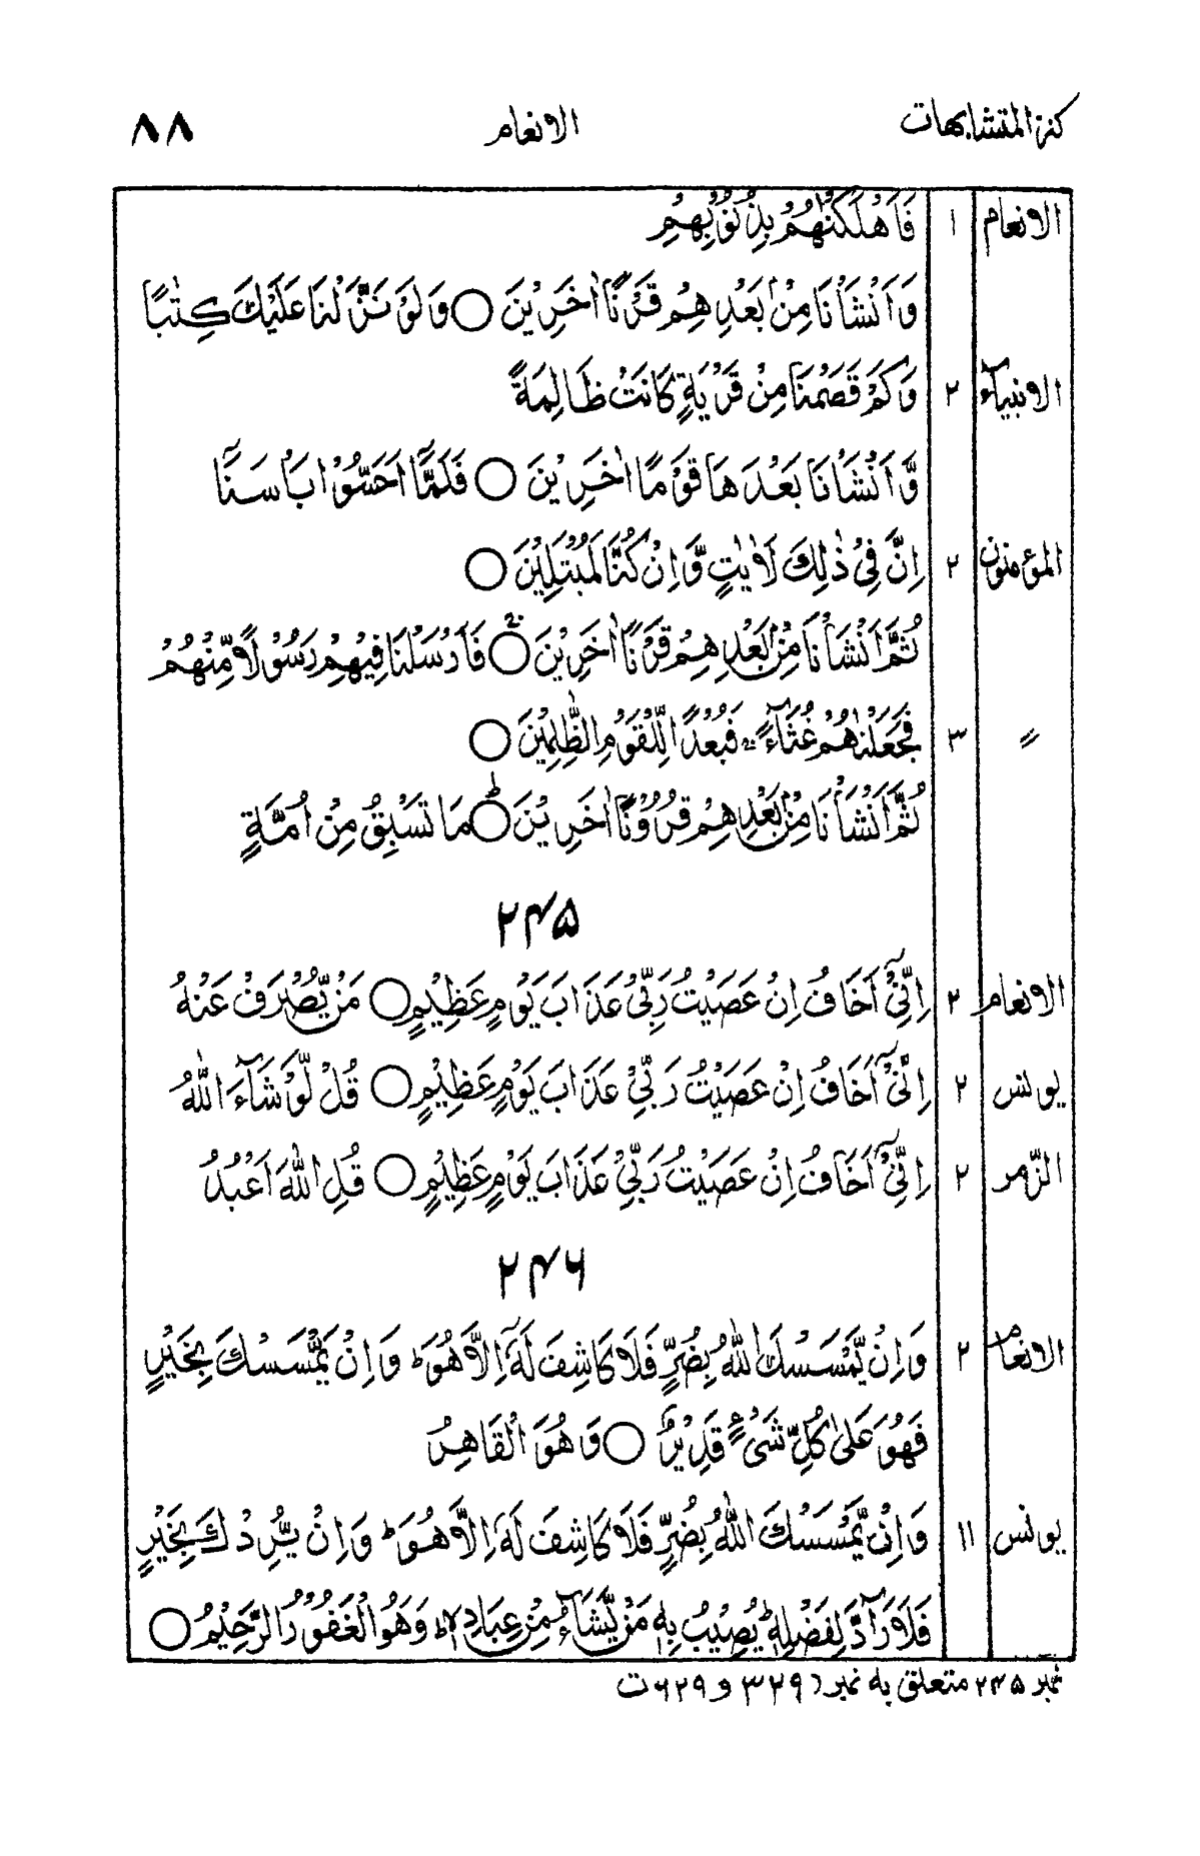 كنز المتشابهات الانعام ٨٨
الانعام ١ فَاَهْلَكْنٰهُمْ بِذُنُوْبِهِمْ
وَاَنْشَاْنَا مِنْۢ بَعْدِهِمْ قَرْنًا اٰخَرِيْنَ ○ وَلَوْ نَزَّلْنَا عَلَيْكَ كِتٰبًا
الانبيآء ٢ وَكَمْ قَصَمْنَا مِنْ قَرْيَةٍ كَانَتْ ظَالِمَةً
وَّاَنْشَاْنَا بَعْدَهَا قَوْمًا اٰخَرِيْنَ ○ فَلَمَّآ اَحَسُّوْا بَاْسَنَآ
المؤمنون ٢ اِنَّ فِيْ ذٰلِكَ لَاٰيٰتٍ وَّاِنْ كُنَّا لَمُبْتَلِيْنَ ○
ثُمَّ اَنْشَاْنَا مِنْۢ بَعْدِهِمْ قَرْنًا اٰخَرِيْنَ ○ فَاَرْسَلْنَا فِيْهِمْ رَسُوْلًا مِّنْهُمْ
〃 ٣ فَجَعَلْنٰهُمْ غُثَآءً ۚ فَبُعْدًا لِّلْقَوْمِ الظّٰلِمِيْنَ ○
ثُمَّ اَنْشَاْنَا مِنْۢ بَعْدِهِمْ قُرُوْنًا اٰخَرِيْنَ ○ مَا تَسْبِقُ مِنْ اُمَّةٍ
۲۴۵
الانعام ٢ اِنِّيْٓ اَخَافُ اِنْ عَصَيْتُ رَبِّيْ عَذَابَ يَوْمٍ عَظِيْمٍ ○ مَنْ يُّصْرَفْ عَنْهُ
يونس ٢ اِنِّيْٓ اَخَافُ اِنْ عَصَيْتُ رَبِّيْ عَذَابَ يَوْمٍ عَظِيْمٍ ○ قُلْ لَّوْ شَآءَ اللّٰهُ
الزّمر ٢ اِنِّيْٓ اَخَافُ اِنْ عَصَيْتُ رَبِّيْ عَذَابَ يَوْمٍ عَظِيْمٍ ○ قُلِ اللّٰهَ اَعْبُدُ
۲۴۶
الانعام ٢ وَاِنْ يَّمْسَسْكَ اللّٰهُ بِضُرٍّ فَلَا كَاشِفَ لَهٗٓ اِلَّا هُوَ ؕ وَاِنْ يَّمْسَسْكَ بِخَيْرٍ
فَهُوَ عَلٰى كُلِّ شَيْءٍ قَدِيْرٌ ○ وَهُوَ الْقَاهِرُ
يونس ١١ وَاِنْ يَّمْسَسْكَ اللّٰهُ بِضُرٍّ فَلَا كَاشِفَ لَهٗٓ اِلَّا هُوَ ؕ وَاِنْ يُّرِدْكَ بِخَيْرٍ
فَلَا رَآدَّ لِفَضْلِهٖ ؕ يُصِيْبُ بِهٖ مَنْ يَّشَآءُ مِنْ عِبَادِهٖ ؕ وَهُوَ الْغَفُوْرُ الرَّحِيْمُ ○
نمبر ۲۴۵ متعلق به نمبر ۳۲۹ و ۶۲۹ ت